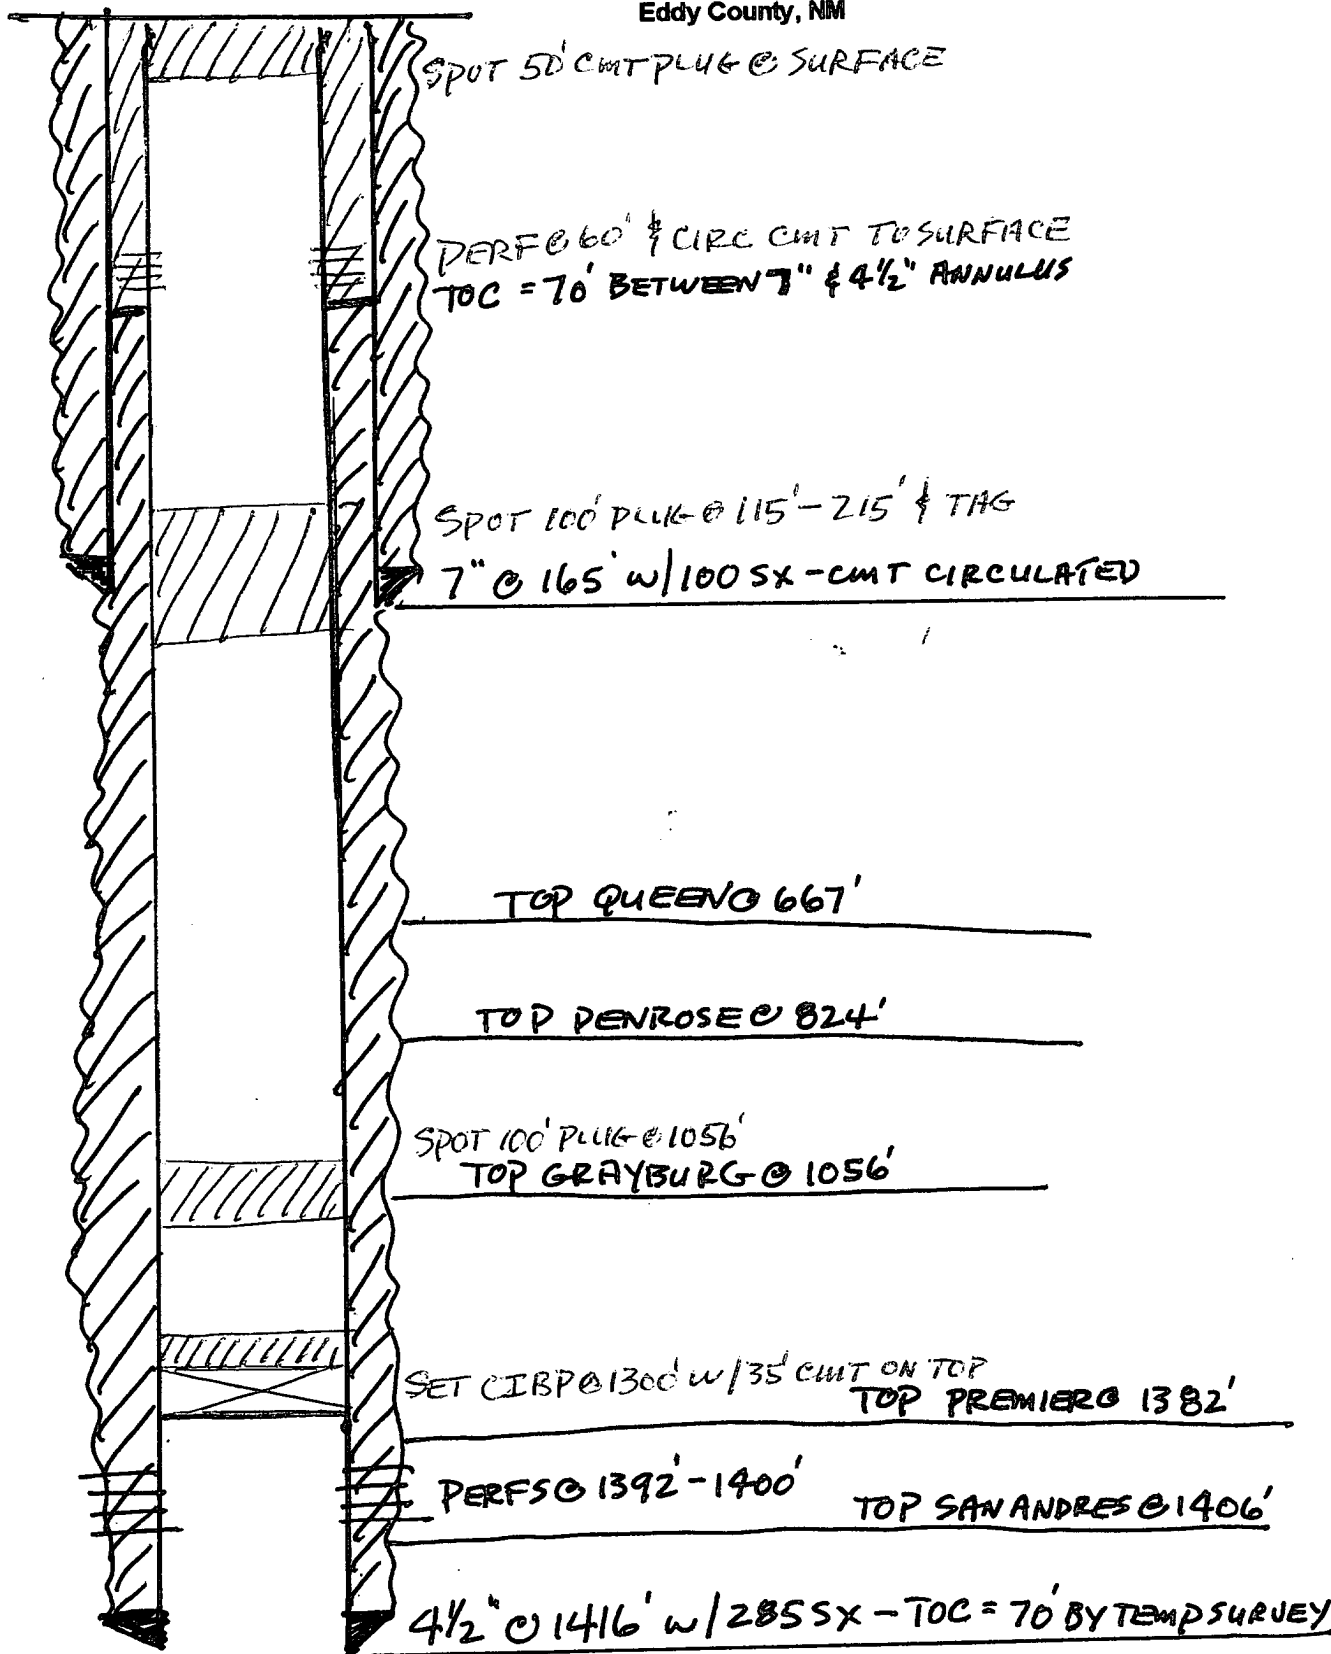 Eddy County, NM
SPOT 50' CMT PLUG @ SURFACE
PERF @ 60' & CIRC CMT TO SURFACE
TOC = 70' BETWEEN 7" & 4½" ANNULUS
SPOT 100' PLUG @ 115'-215' & TAG
7" @ 165' w/100 SX-CMT CIRCULATED
TOP QUEEN @ 667'
TOP PENROSE @ 824'
SPOT 100' PLUG @ 1056'
TOP GRAYBURG @ 1056'
SET CIBP @ 1300' w/35' CMT ON TOP
TOP PREMIER @ 1382'
PERFS @ 1392'-1400'
TOP SAN ANDRES @ 1406'
4½" @ 1416' w/285 SX - TOC = 70' BY TEMP SURVEY